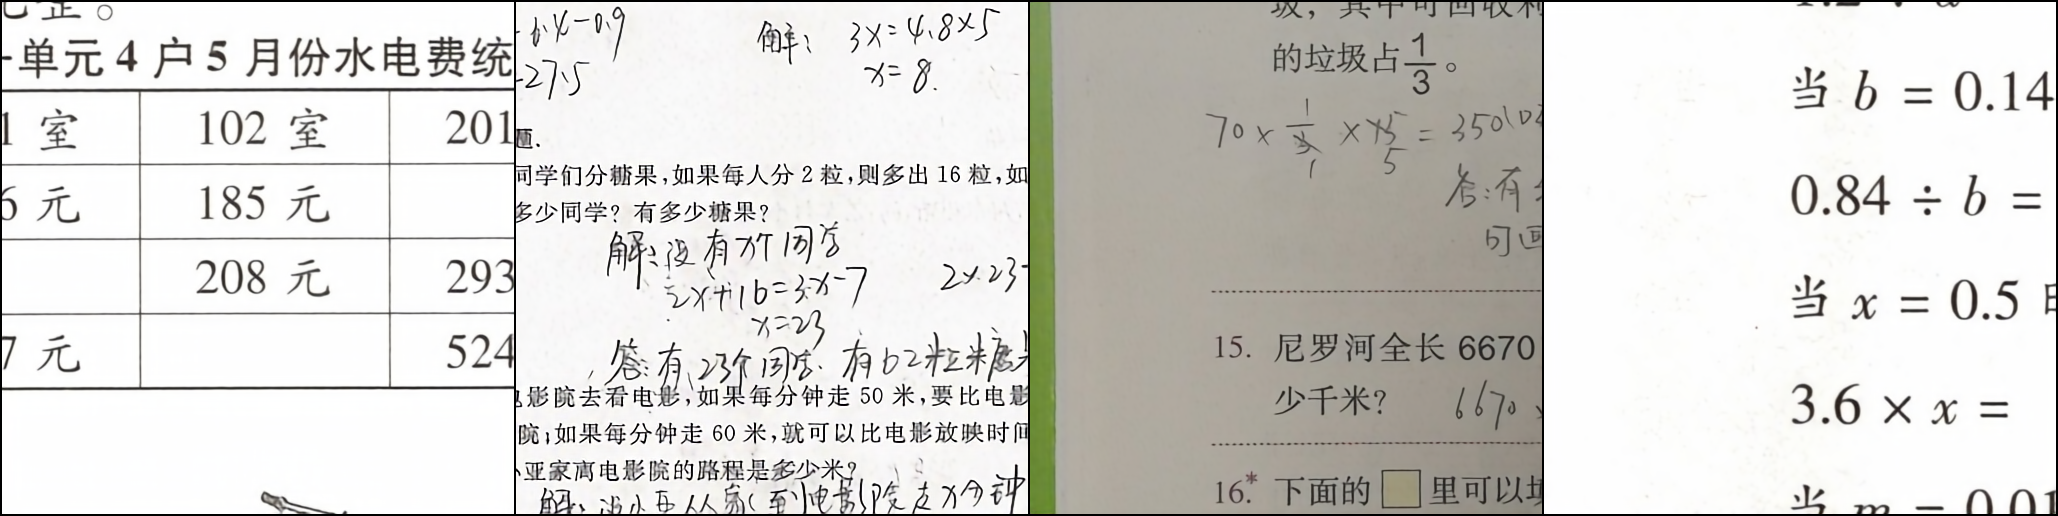 一单元 4 户 5 月份水电费统
1 室 102 室 201
6 元 185 元
208 元 293
7 元 524
6.4-0.9 解: 3x=4.8×5
27.5 x=8.
题.
同学们分糖果,如果每人分 2 粒,则多出 16 粒,如
多少同学? 有多少糖果?
解:设有x个同学
2x+16=3x-7 2×23
x=23
答:有23个同学. 有62粒糖
影院去看电影,如果每分钟走 50 米,要比电影
院;如果每分钟走 60 米,就可以比电影放映时间
亚家离电影院的路程是多少米?
解:设小亚从家到电影院走x分钟
圾,其中可回收利
的垃圾占 1/3 。
70 × 1/3 × 15 = 350
答:有
可回
15. 尼罗河全长 6670
少千米? 6670
16.* 下面的 □ 里可以填
当 b = 0.14
0.84 ÷ b =
当 x = 0.5 时
3.6 × x =
当 m = 0.01